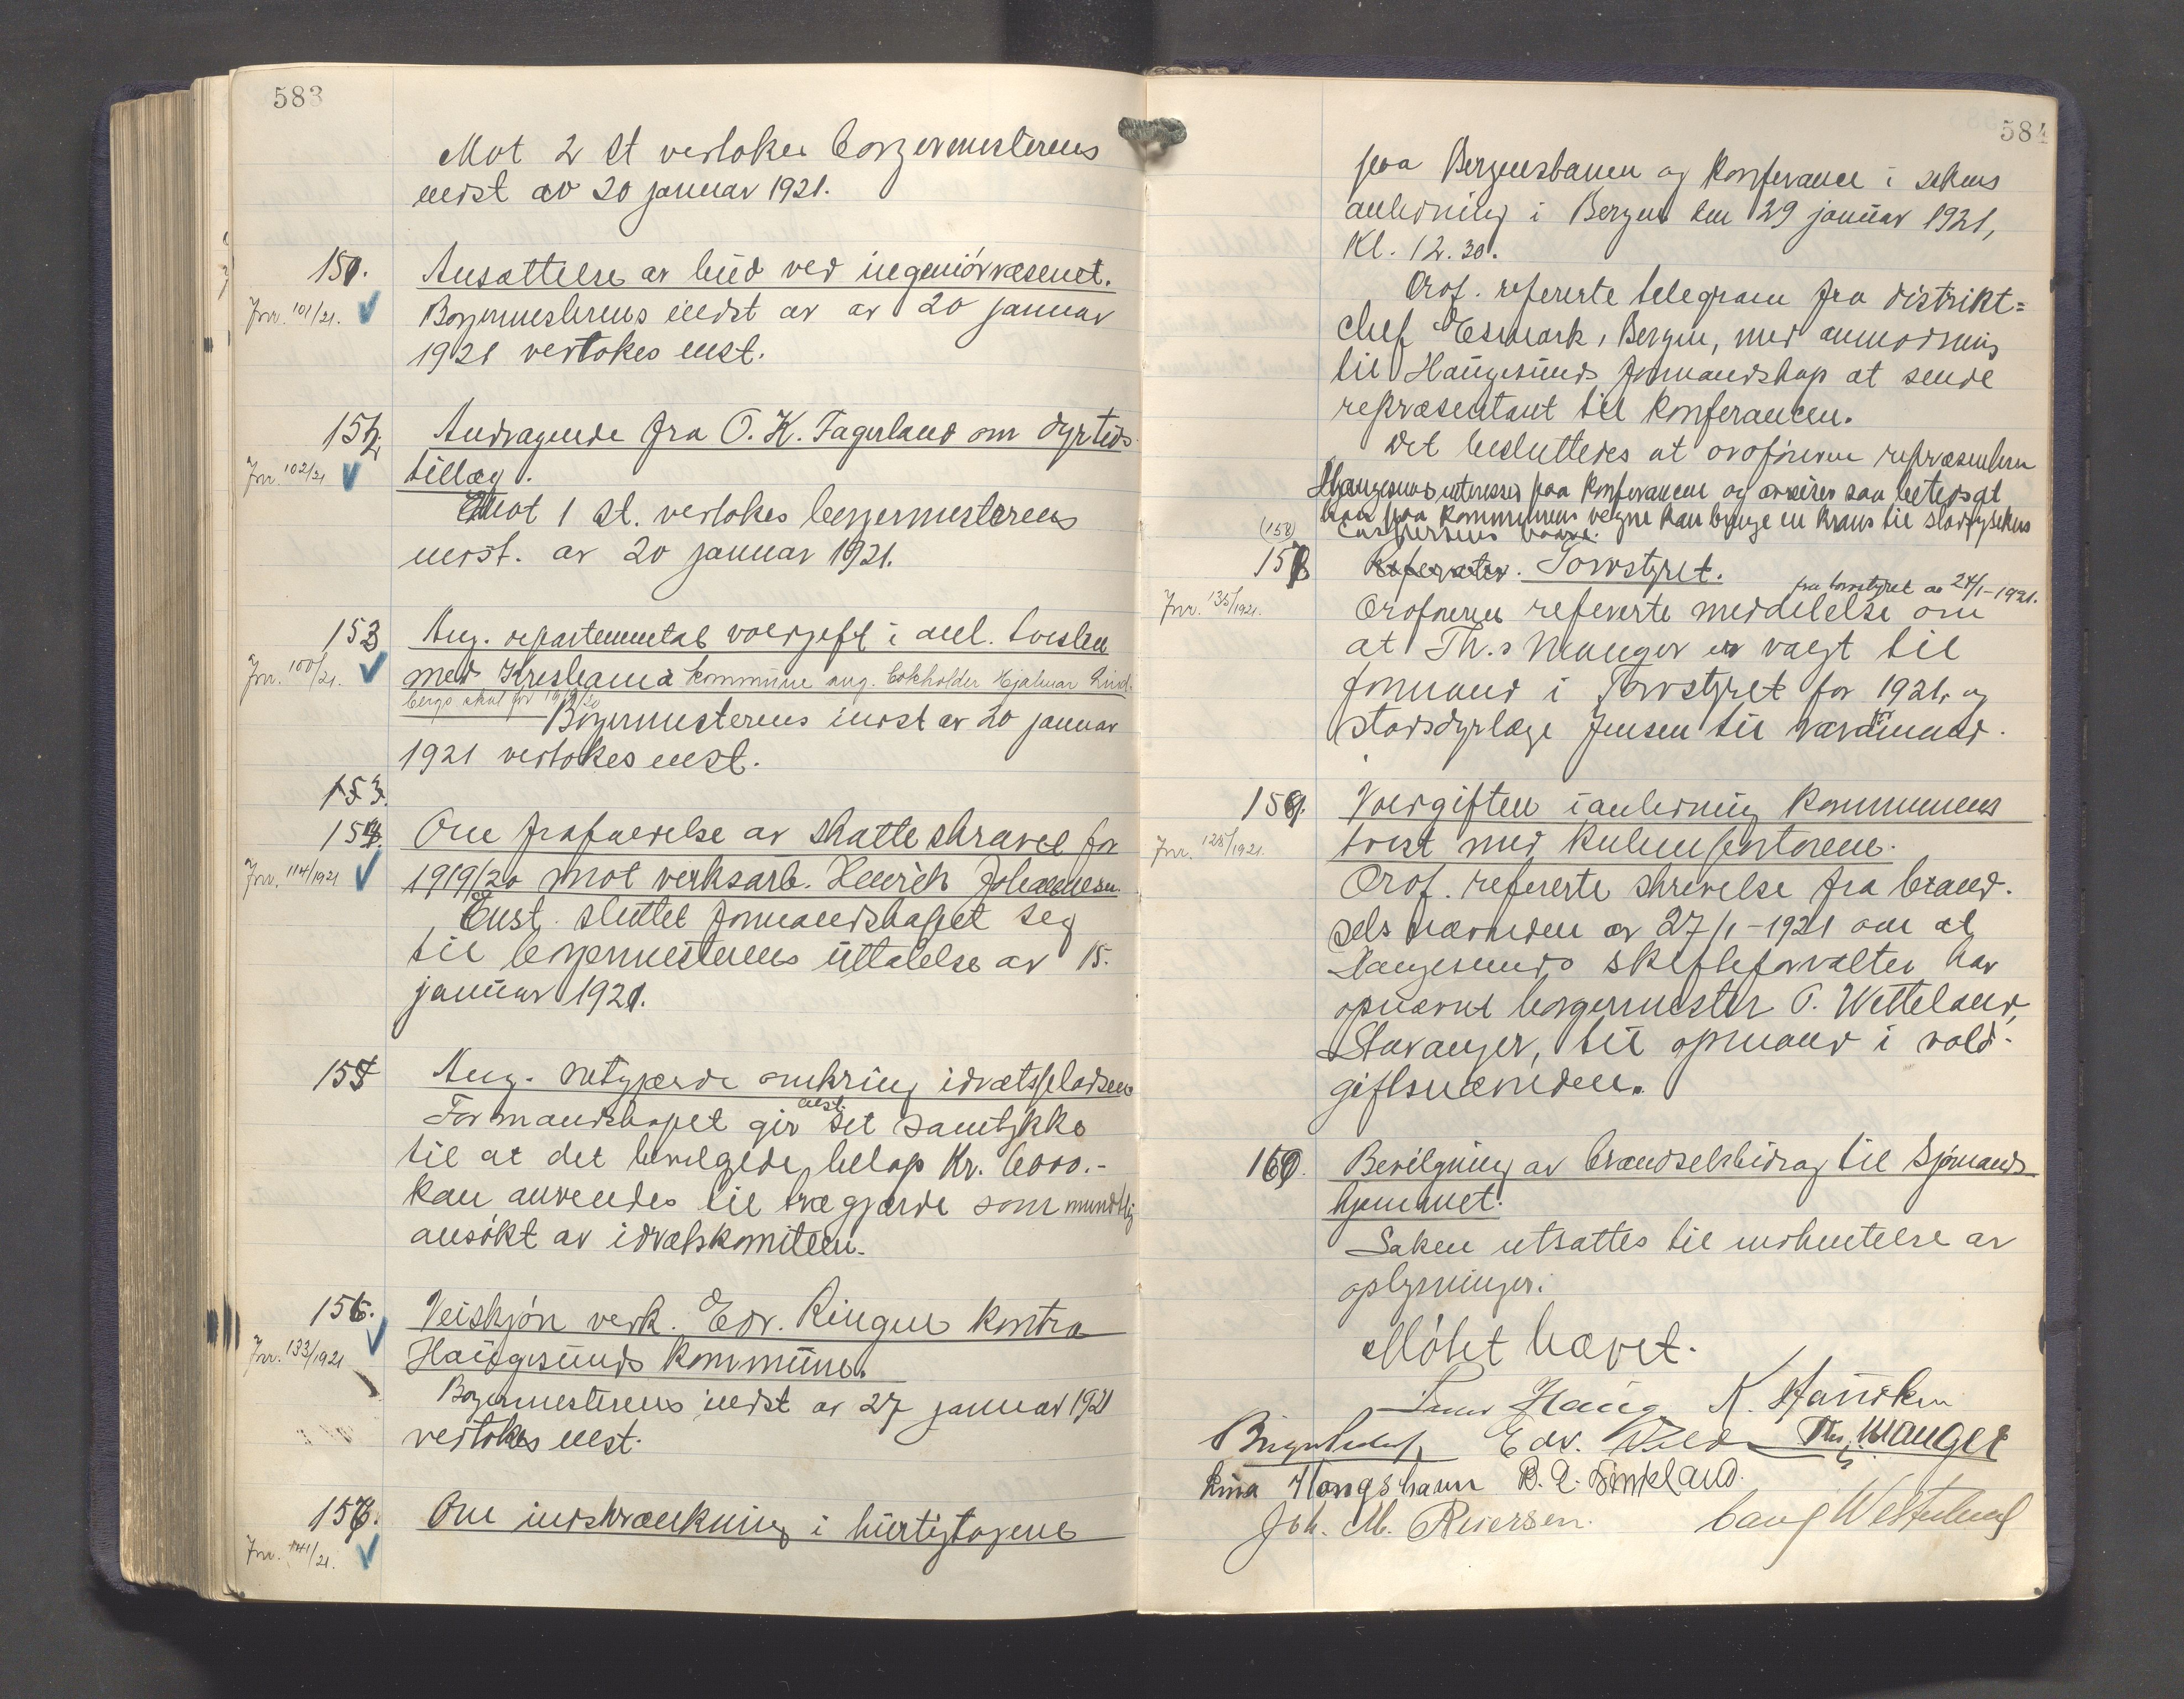 583
Mot 2 st vedtokes borgermesterens
indst av 20 januar 1921.
151. Ansættelse av bud ved ingeniörvæsenet.
Jnr. 101/21.
Borgermesterens indst av av 20 januar
1921 vedtokes enst.
152. Andragende fra O. K. Fagerland om dyrtids-
Jnr. 102/21
tillæg.
Mot 1 st. vedtokes borgermesterens
indst. av 20 januar 1921.
153 Ang. departemental voldgift i anl. tvisten
Jnr. 100/21.
med Kristiania kommune ang. bokholder Hjalmar Lind-
bergs skat for 1919/20
Borgermesterens indst av 20 januar
1921 vedtokes enst.
153.
154. Om frafaldelse av skattekravet for
Jnr. 114/1921
1919/20 mot verksarb. Henrich Johannesen.
Enst. sluttet formandskapet seg
til borgermesterens uttalelse av 15.
januar 1921.
155 Ang. netgjærde omkring idrætspladsen
Formandskapet gir enst. det samtykke
til at det bevilgede belöp Kr. 6000.-
kan anvendes til trægjærde som mundtlig
ansökt av idrætskomiteen.
156. Veiskjön verk. Edv. Ringen kontra
Jnr. 133/1921
Haugesunds kommune.
Borgermesterens indst av 27 januar 1921
vedtokes enst.
157. Om indskrænkning i hurtigtogene
Jnr. 141/21.
584
paa Bergensbanen og konferance i sakens
anledning i Bergen den 29 januar 1921,
Kl. 12.30.
Ordf. refererte telegram fra distrikt=
chef Esmark, Bergen, med anmodning
til Haugesunds formandskap at sende
repræsentant til konferancen.
Det besluttedes at ordföreren repræsenterer
Haugesunds interesser paa konferancen og avreiser saa betids at
han paa kommunens vegne kan bringe en krans til stadsfysikus
Caspersens baare.
(158)
158 Referater. Torvstyret.
Jnr. 135/1921.
fra torvstyret av 24/1-1921.
Ordföreren refererte meddelelse om
at Th.s Mauger er valgt til
formand i Torvstyret for 1921, og
stadsdyrlæge Jensen til varamand.
159. Voldgiften i anledning kommunens
Jnr. 128/1921.
tvist med kulimportörene.
Ordf. refererte skrivelse fra brænd-
selsnævnden av 27/1-1921 om at
Haugesunds skifteforvalter har
opnævnt borgermester O. Wetteland,
Stavanger, til opmand i vold-
giftsnævnden.
160. Bevilgning av brændselsbidrag til Sjömands-
hjemmet.
Saken utsattes til indhentelse av
oplysninger.
Mötet hævet.
Haug K. Hausken
Edv. Th.s Mauger
B. A. Sömeland.
Joh. M. Reiersen.